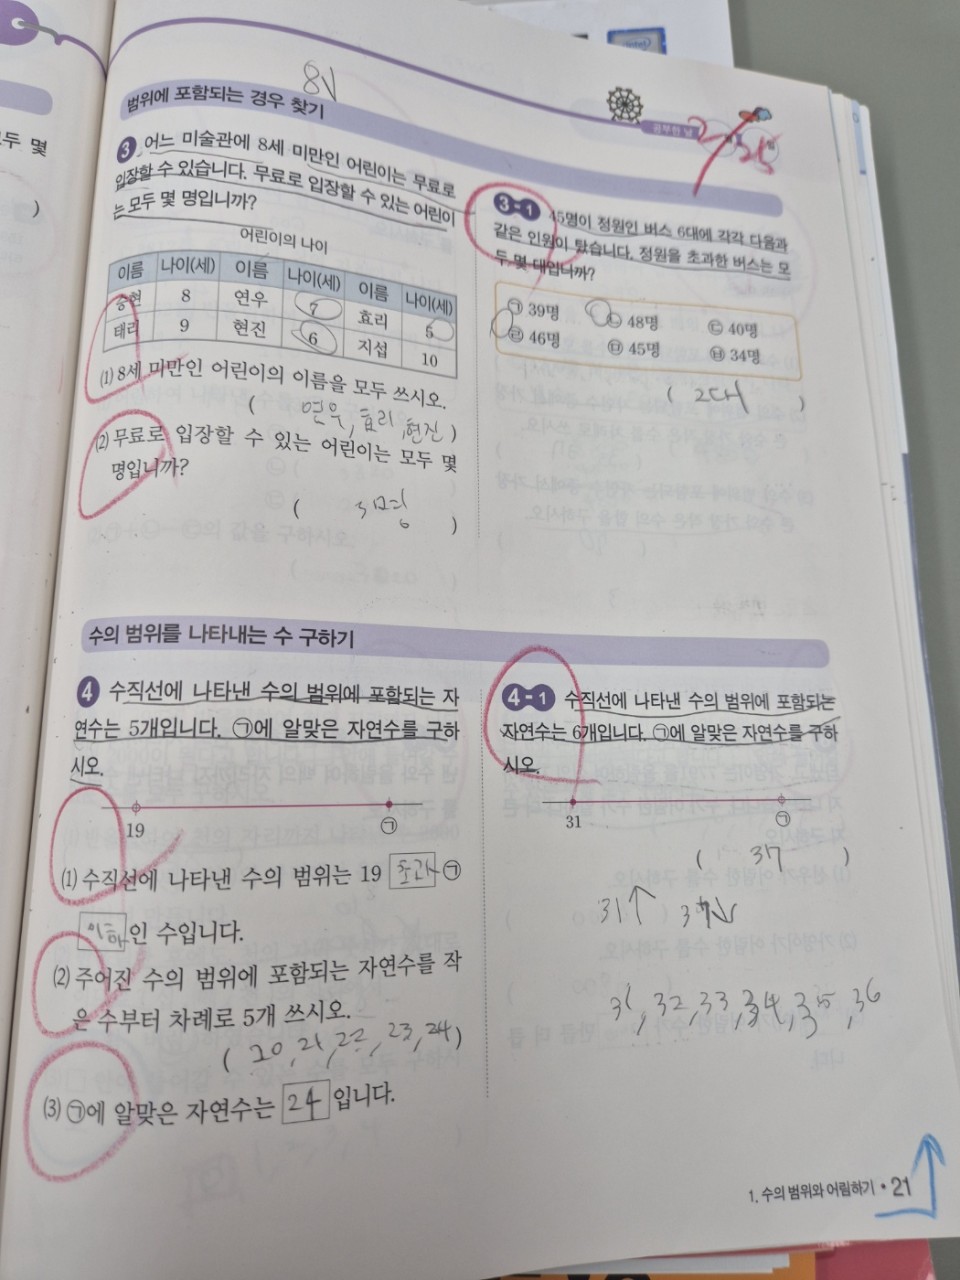 두 몇
)
8↓
범위에 포함되는 경우 찾기
공부한 날
2
월
25
일
3 어느 미술관에 8세 미만인 어린이는 무료로
입장할 수 있습니다. 무료로 입장할 수 있는 어린이
는 모두 몇 명입니까?
어린이의 나이
이름 나이(세) 이름 나이(세) 이름 나이(세)
승현 8 연우 7 효리 5
태리 9 현진 6 지섭 10
(1) 8세 미만인 어린이의 이름을 모두 쓰시오.
( 연우, 효리, 현진 )
(2) 무료로 입장할 수 있는 어린이는 모두 몇
명입니까?
( 3명 )
3-1 45명이 정원인 버스 6대에 각각 다음과
같은 인원이 탔습니다. 정원을 초과한 버스는 모
두 몇 대입니까?
㉠ 39명 ㉡ 48명 ㉢ 40명
㉣ 46명 ㉤ 45명 ㉥ 34명
( 2대 )
수의 범위를 나타내는 수 구하기
4 수직선에 나타낸 수의 범위에 포함되는 자
연수는 5개입니다. ㉠에 알맞은 자연수를 구하
시오.
19 ㉠
(1) 수직선에 나타낸 수의 범위는 19 초과 ㉠
이하 인 수입니다.
(2) 주어진 수의 범위에 포함되는 자연수를 작
은 수부터 차례로 5개 쓰시오.
( 20, 21, 22, 23, 24 )
(3) ㉠에 알맞은 자연수는 24 입니다.
4-1 수직선에 나타낸 수의 범위에 포함되는
자연수는 6개입니다. ㉠에 알맞은 자연수를 구하
시오.
31 ㉠
( 37 )
31↑ 37↓
31, 32, 33, 34, 35, 36
1. 수의 범위와 어림하기 • 21